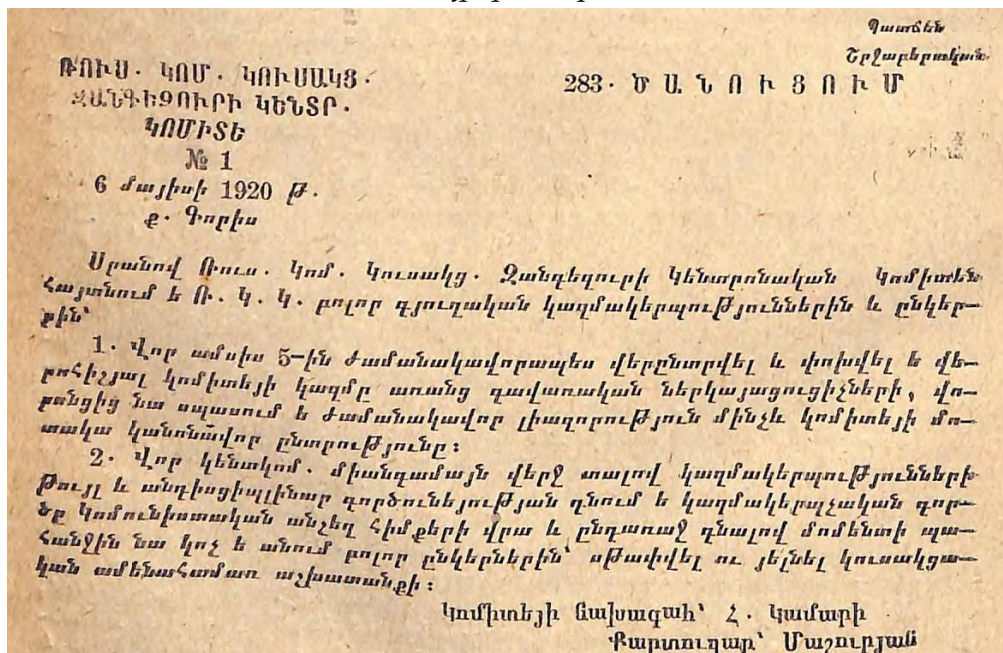 Պատճեն
Շրջաբերական
ՌՈՒՍ. ԿՈՄ. ԿՈՒՍԱԿՑ.
283. ԾԱՆՈՒՑՈՒՄ
ԶԱՆԳԵԶՈՒՐԻ ԿԵՆՏՐ.
ԿՈՄԻՏԵ
№ 1
6 մայիսի 1920 թ.
ք. Գորիս
Սրանով Ռուս. Կոմ. Կուսակց. Զանգեզուրի Կենտրոնական Կոմիտեն
հայտնում է Ռ. Կ. Կ. բոլոր գյուղական կազմակերպություններին և ընկեր–
քին՝
1. Վոր ամսիս 5–ին ժամանակավորապես վերընտրվել և փոխվել է վե–
րոհիշյալ կոմիտեյի կազմը առանց գավառական ներկայացուցիչների, վո–
րոնցից նա սպասում է ժամանակավոր լիազորություն մինչև կոմիտեյի մո–
տակա կանոնավոր ընտրությունը:
2. Վոր կենտկոմ. միանգամայն վերջ տալով կազմակերպությունների
թույլ և անդիսցիպլինար գործունեյության դնում է կազմակերպչական գոր–
ծը կոմունիստական անշեղ հիմքերի վրա և ընդառաջ գնալով մոմենտի պա–
հանջին նա կոչ է անում բոլոր ընկերներին՝ սթափվել ու յելնել կուսակցա–
կան ամենահամառ աշխատանքի:
Կոմիտեյի նախագահ՝ Հ. Կամարի
Քարտուղար՝ Մաշուրյան